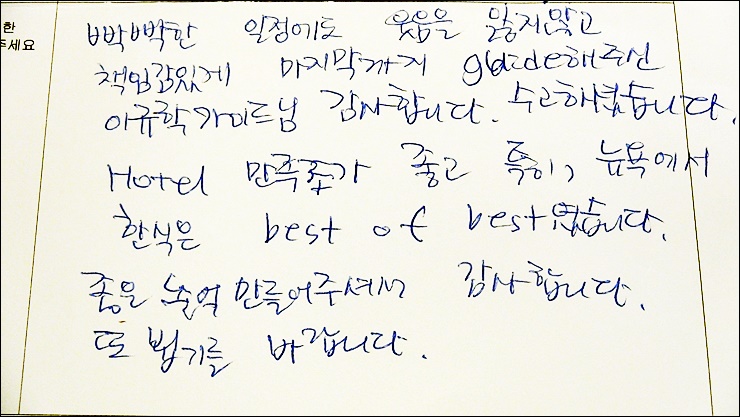 한
주세요
빡빡한 일정에도 웃음을 잃지않고
책임감있게 마지막까지 guide해주신
이규학가이드님 감사합니다. 수고하셨습니다.
Hotel 만족도가 좋고 특히, 뉴욕에서
한식은 best of best였습니다.
좋은 추억 만들어주셔서 감사합니다.
또 뵙기를 바랍니다.